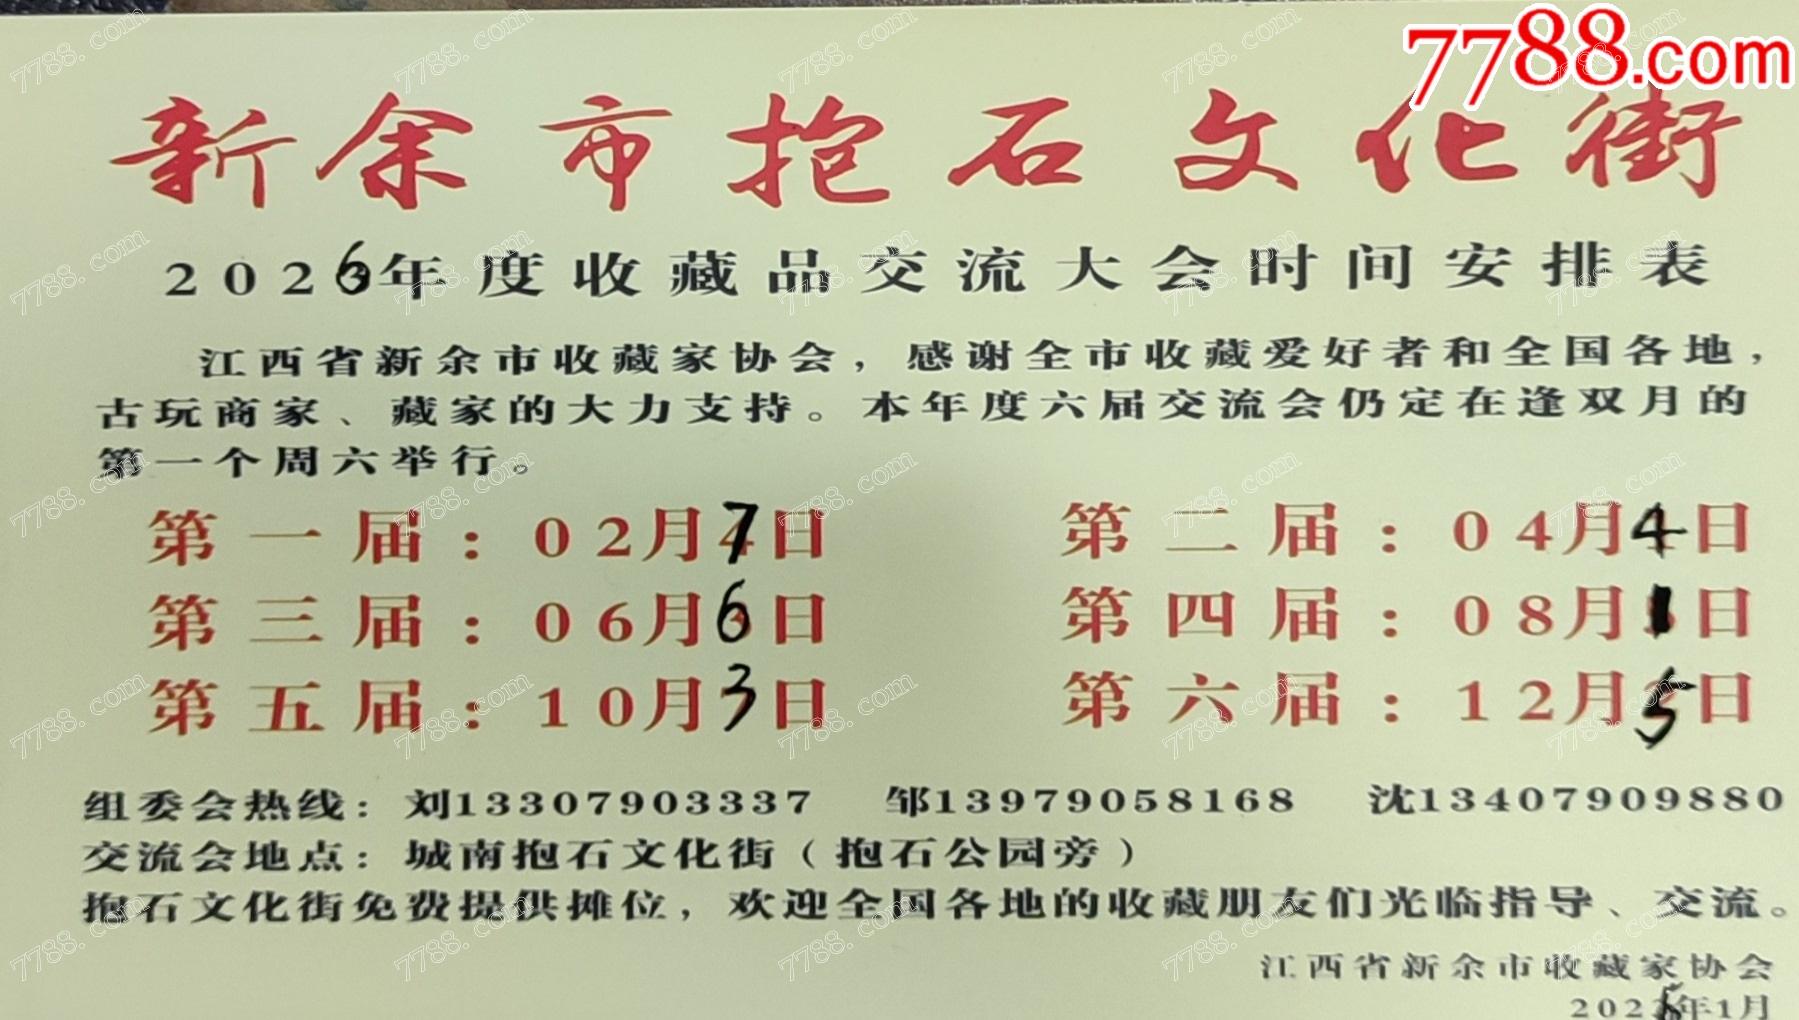 7788.com
新余市抱石文化街
2026年度收藏品交流大会时间安排表
江西省新余市收藏家协会，感谢全市收藏爱好者和全国各地，
古玩商家、藏家的大力支持。本年度六届交流会仍定在逢双月的
第一个周六举行。
第一届：02月7日 第二届：04月4日
第三届：06月6日 第四届：08月1日
第五届：10月3日 第六届：12月5日
组委会热线：刘13307903337 邹13979058168 沈13407909880
交流会地点：城南抱石文化街（抱石公园旁）
抱石文化街免费提供摊位，欢迎全国各地的收藏朋友们光临指导、交流。
江西省新余市收藏家协会
2026年1月